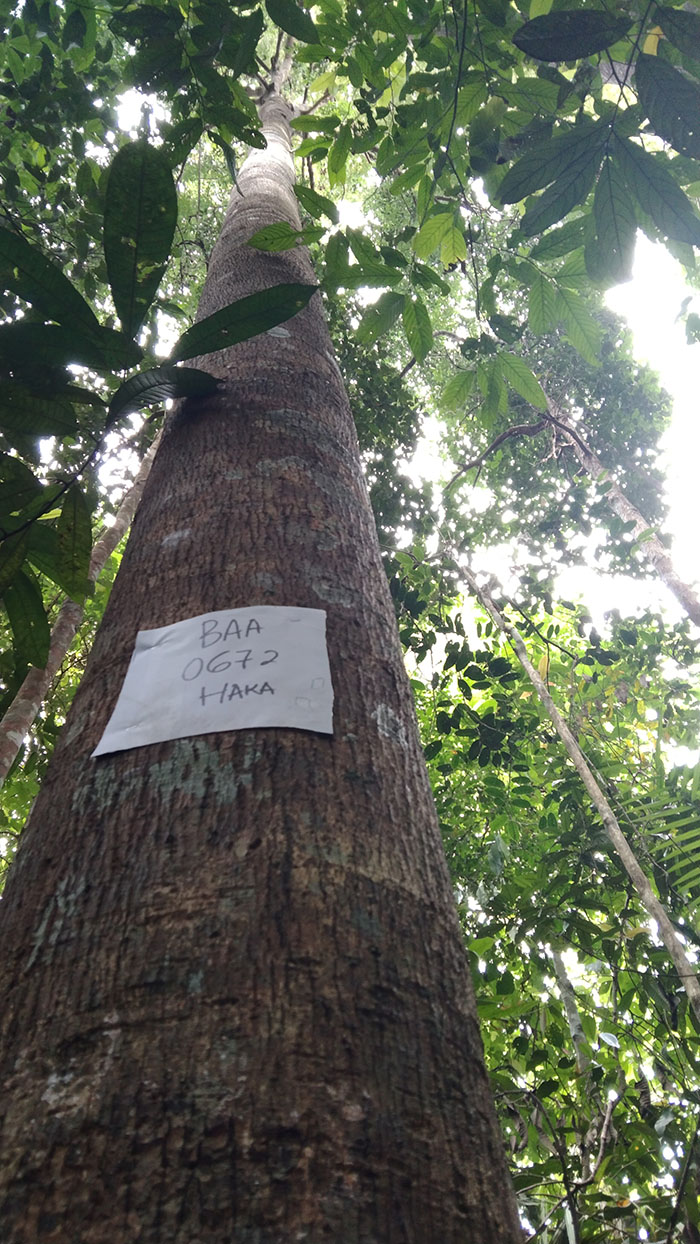 BAA
0672
HAKA